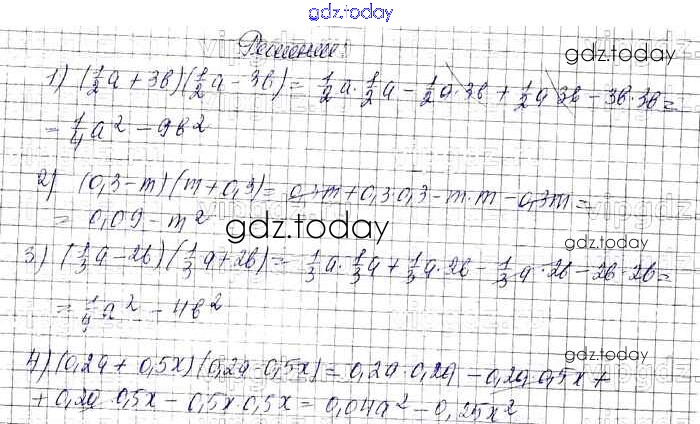 gdz.today
Решение:
gdz.today
1) (1/2 a + 3в)(1/2 a - 3в) = 1/2 a · 1/2 a - 1/2 a · 3в + 1/2 a 3в - 3в · 3в =
= 1/4 a² - 9в²
2) (0,3 - m)(m + 0,3) = 0,3m + 0,3·0,3 - m·m - 0,3m =
= 0,09 - m²
gdz.today
3) (1/3 a - 2в)(1/3 a + 2в) = 1/3 a · 1/3 a + 1/3 a · 2в - 1/3 a · 2в - 2в · 2в =
= 1/9 a² - 4в²
gdz.today
4) (0,2a + 0,5x)(0,2a - 0,5x) = 0,2a · 0,2a - 0,2a · 0,5x +
+ 0,2a · 0,5x - 0,5x · 0,5x = 0,04a² - 0,25x²
gdz.today